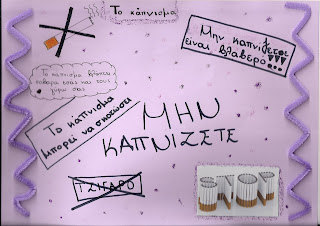 Το κάπνισμα
Μην καπνίζετε
είναι βλαβερό!!!
Το κάπνισμα βλάπτει
σοβαρά εσάς και τους
γύρω σας
Το κάπνισμα
μπορεί να σκοτώσει
ΜΗΝ
ΚΑΠΝΙΖΕΤΕ
ΤΣΙΓΑΡΟ